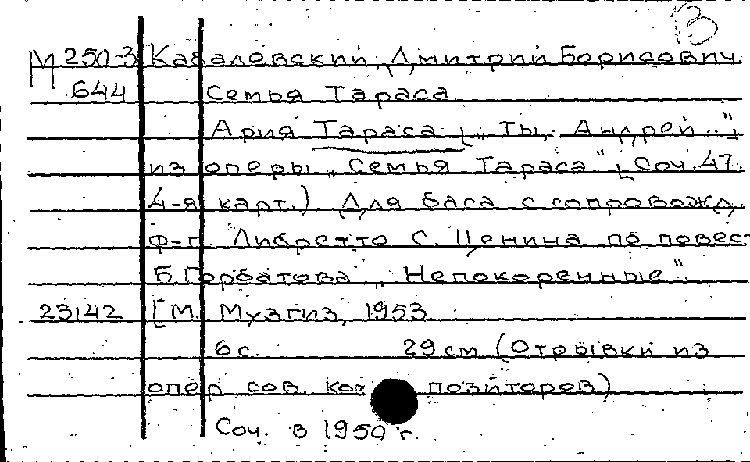 В
М 250-3 Кабалевский, Дмитрий Борисович.
644 Семья Тараса
Ария Тараса [„Ты, Андрей..."]
из оперы „Семья Тараса" [, Соч. 47.
4-я карт.) Для баса с сопровожд.
ф-п. Либретто С. Ценина по повест
Б. Горбатова „Непокоренные".
23142 [М. Музгиз, 1953
6 с. 29 см (Отрывки из
опер сов. композиторов)
Соч. в 1950 г.